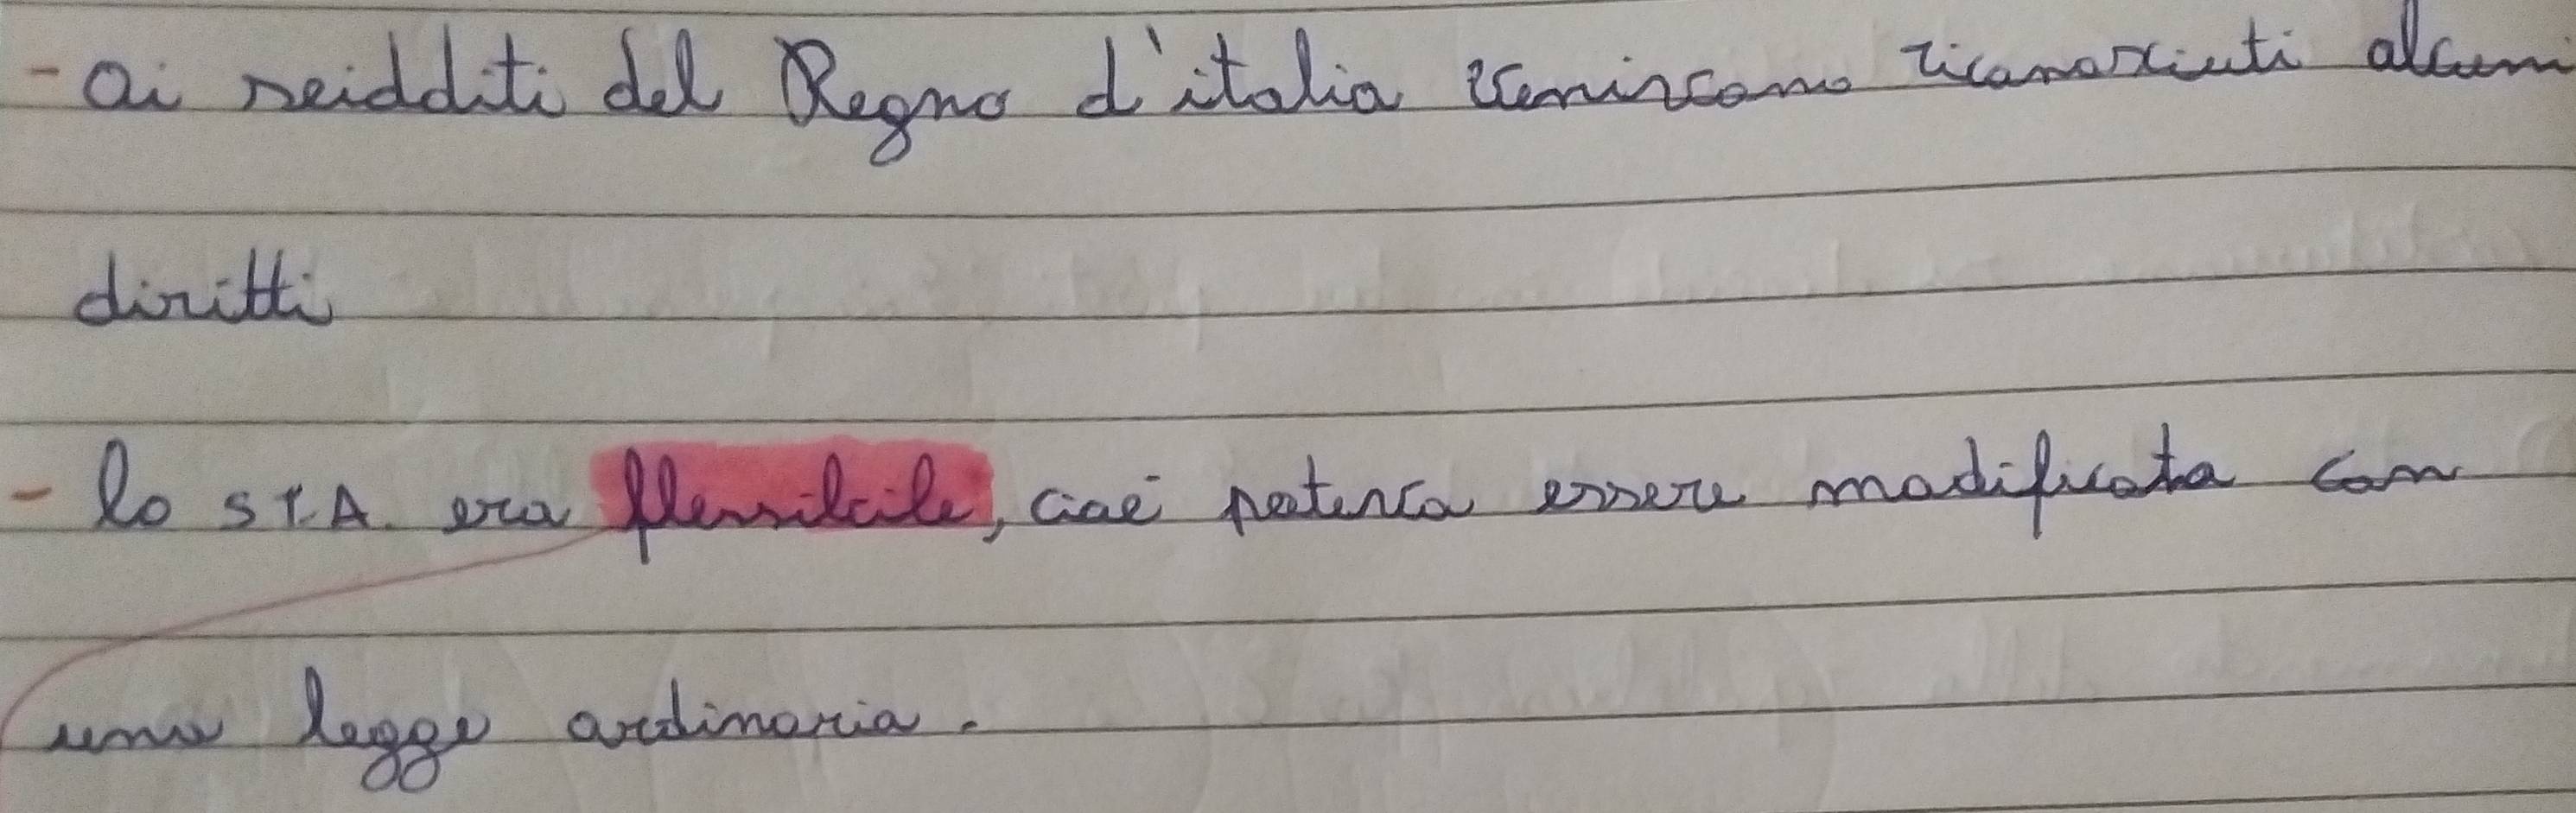 - Ai sudditi del Regno d'italia veniscono riconosciuti alcuni
diritti
- lo ST.A. era flessibile, cioè poteva essere modificata con
una legge ordinaria.